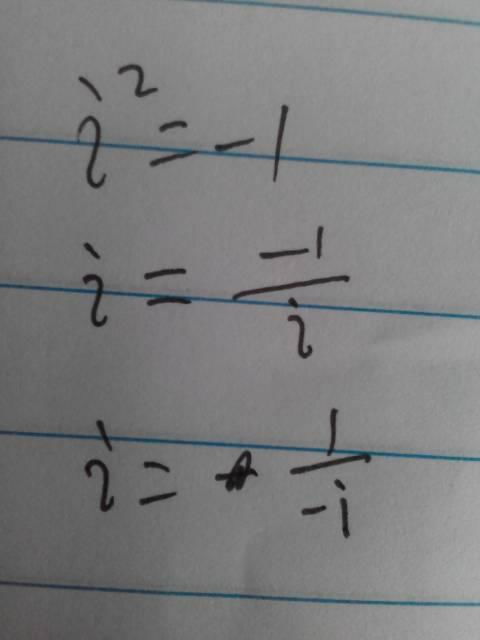 i² = -1
i = -1/i
i = 1/-i